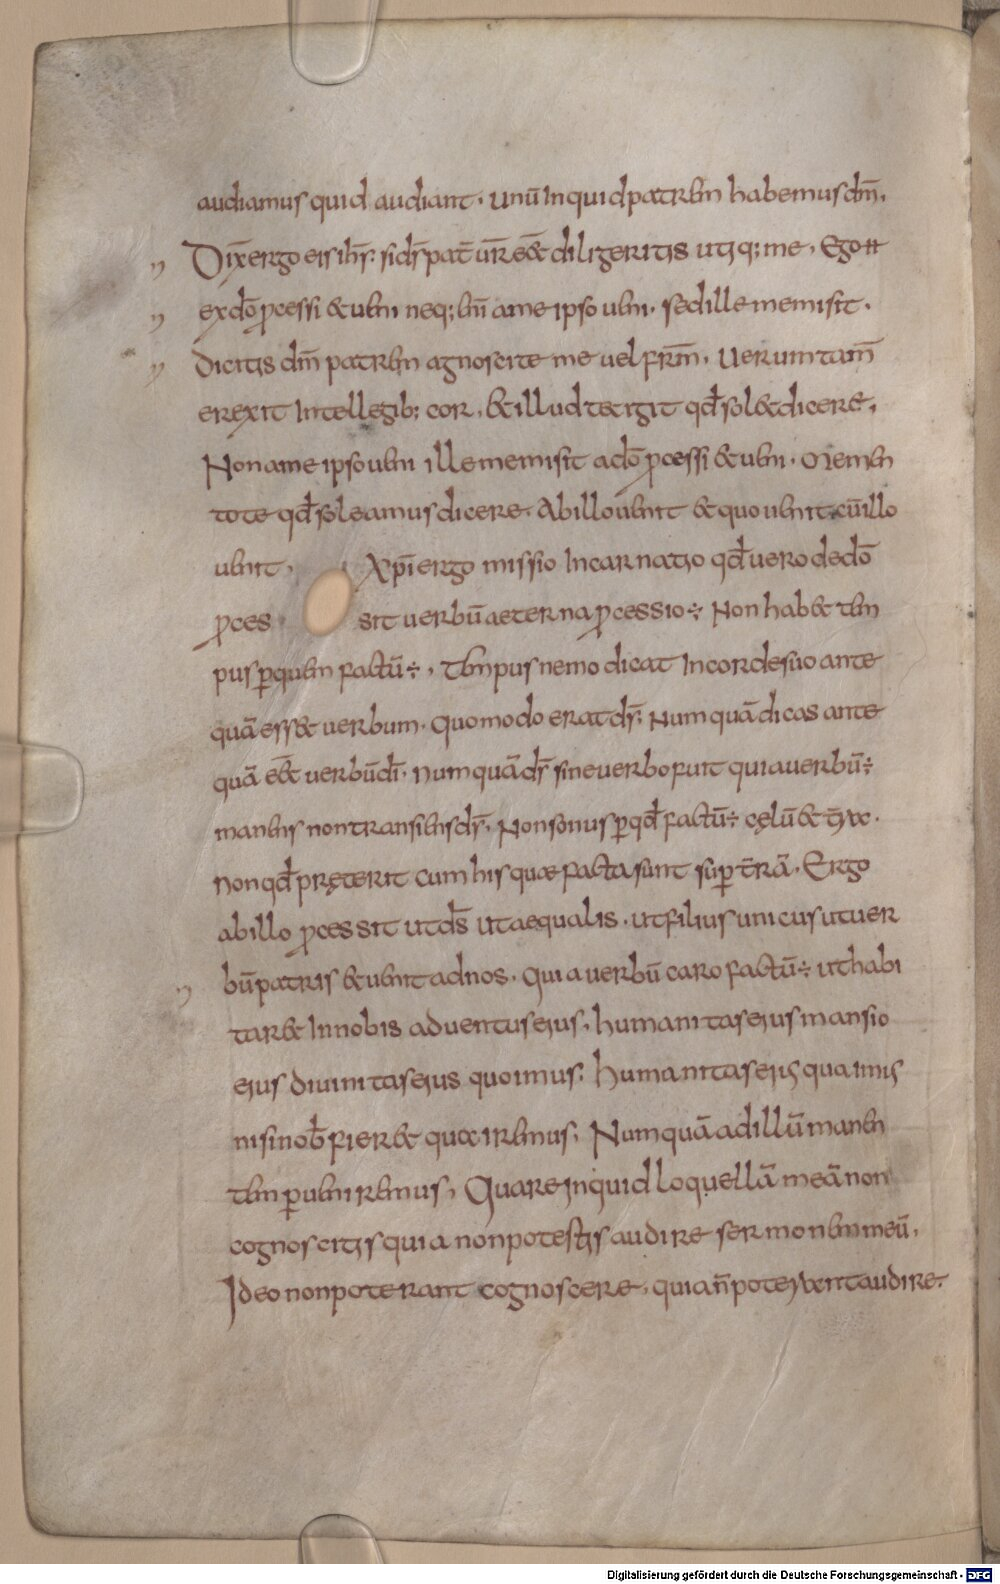 audiamus quid audiant. unū inquid patrem habemus dm̄.
Dix̄ ergo eis ihs̄. si ds̄ pat̄ ur̄ eēt diligeritis utiq; me. Ego ħ
ex dō ꝓcessi & ueni neq; eni̅ a me ipso ueni. sed ille me misit.
Dicitis dm̄ patrem agnoscite me uel frm̄. uerum tam̄
erexit intellegib; cor. & illud tetigit qđ sol& dicere.
Non a me ipso ueni ille me misit a dō ꝓcessi & ueni. Memen
tote qđ soleamus dicere. Ab illo uenit & quo uenit cū illo
uenit. Xpī ergo missio incarnatio qđ uero de dō
ꝓces sit uerbū aeterna ꝓcessio ÷ Non hab& tem
pus ꝑ quem factū ÷. tempus nemo dicat in corde suo ante
quā ess& uerbum. quomodo erat ds̄. Numquā dicas ante
quā eē& uerbū dī. numquā ds̄ sine uerbo fuit quia uerbū ÷
manens non transiens ds̄. Non sonus ꝑ qđ factū ÷ cęlū & terra.
non qđ pręterit cum his quae facta sunt suꝑ t̄rā. Ergo
ab illo ꝓcessit ut ds̄ ut aequalis. ut filius unicus ut uer
bū patris & uenit ad nos. quia uerbū caro factū ÷ ut habi
tar& in nobis aduentus eius. humanitas eius mansio
eius diuinitas eius quo imus. humanitas eius qua imus
nisi nob̄ fier& quae iremus. Numquā ad illū manen
tem ꝑueniremus. Quare inquid loquellā meā non
cognoscitis quia non potestis audire sermonem meū.
Ideo non poterant cognoscere. quia n̄ poterant audire.
Digitalisierung gefördert durch die Deutsche Forschungsgemeinschaft - DFG